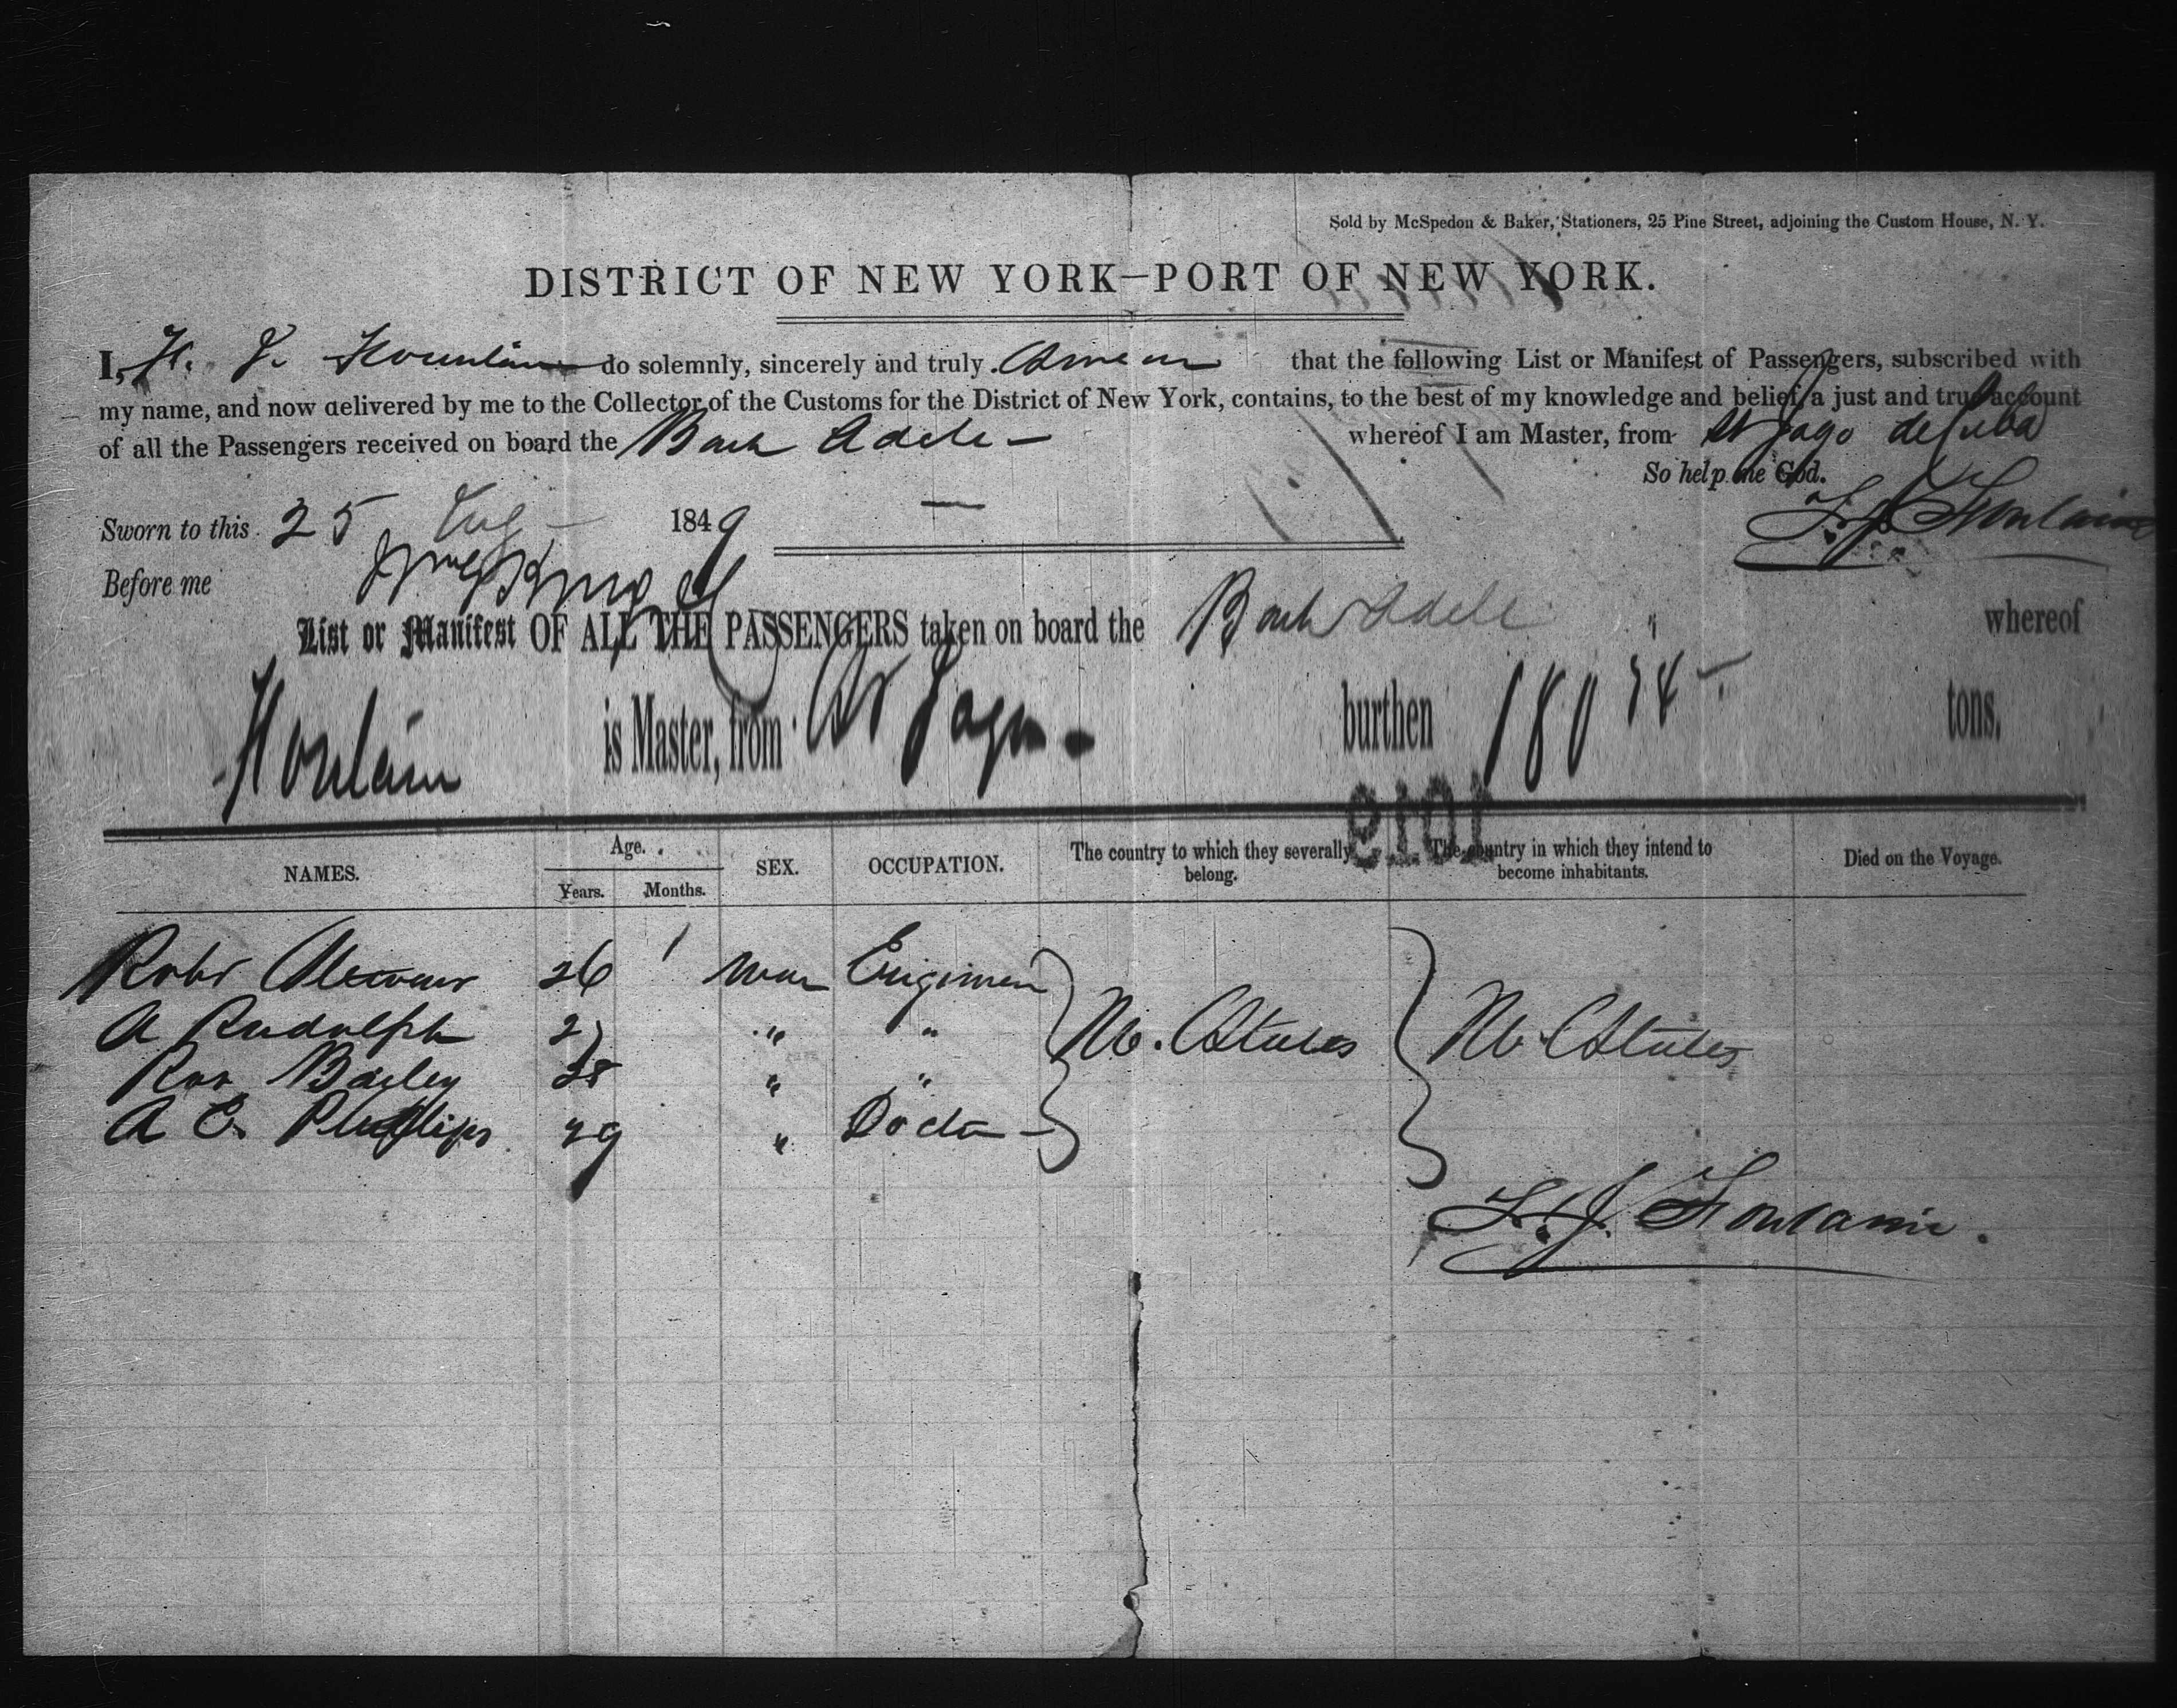 Sold by McSpedon & Baker, Stationers, 25 Pine Street, adjoining the Custom House, N. Y.
DISTRICT OF NEW YORK—PORT OF NEW YORK.
I, do solemnly, sincerely and truly Swear that the following List or Manifest of Passengers, subscribed with
my name, and now delivered by me to the Collector of the Customs for the District of New York, contains, to the best of my knowledge and belief, a just and true account
of all the Passengers received on board the Bark Adele — whereof I am Master, from St Jago de Cuba
So help me God.
Sworn to this 25 Aug 1849
F. J. Fontaine
Before me
List or Manifest OF ALL THE PASSENGERS taken on board the Bark Adele whereof
Fontain is Master, from St Jago. burthen 180 tons.
1019
NAMES. Age. Years. Months. SEX. OCCUPATION. The country to which they severally belong. The country in which they intend to become inhabitants. Died on the Voyage.
Robt 26 man Engineer
A Rudolph 27 " " U. States U. States
Bailey 28 " "
A E. Phillips 29 " Doctor
F. J. Fontaine.